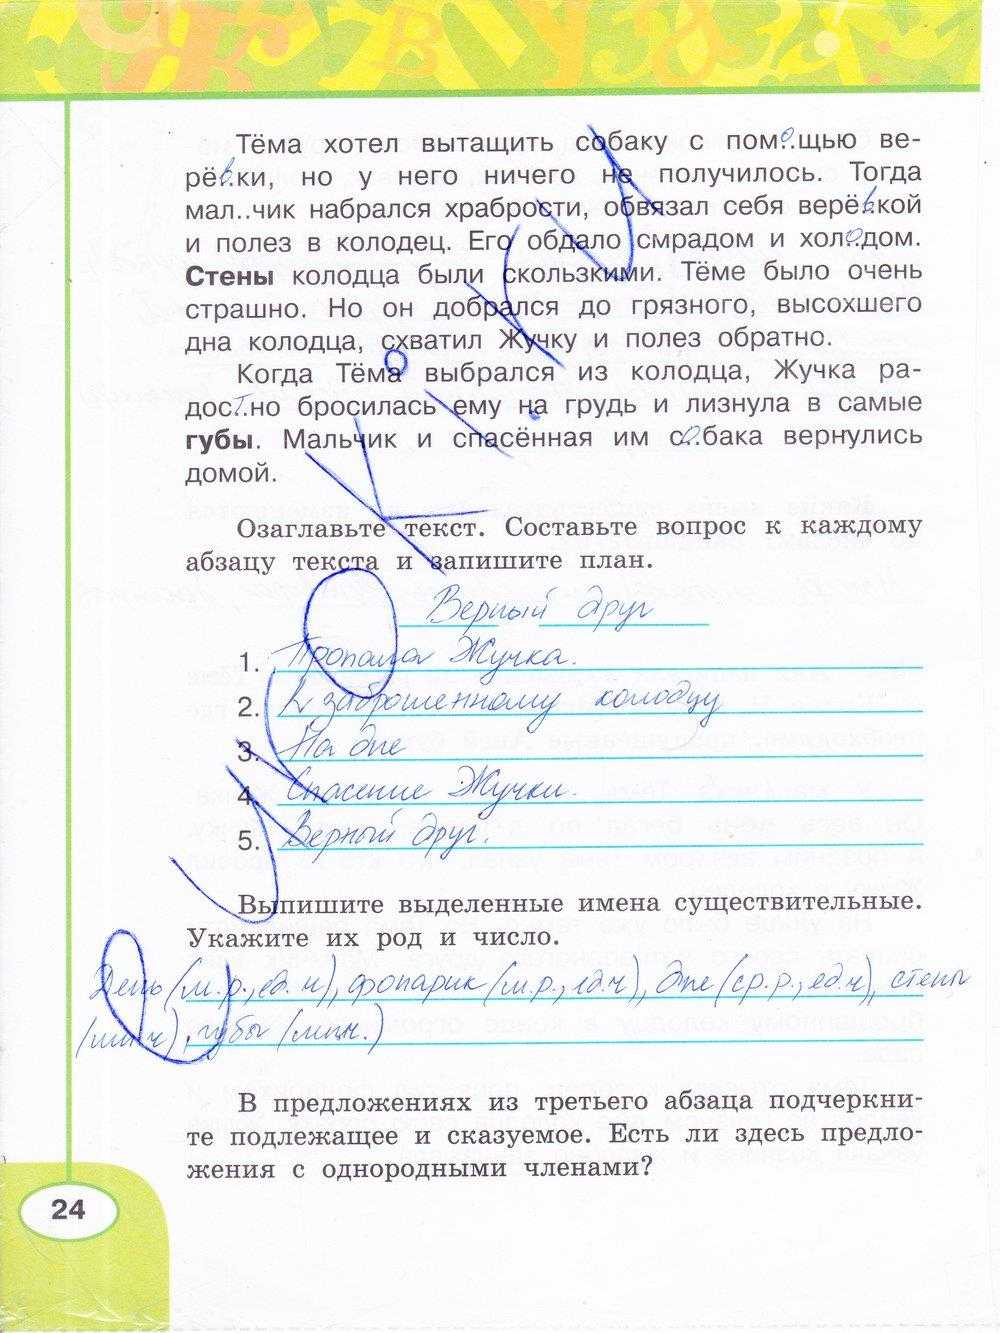 Тёма хотел вытащить собаку с помо.щью ве-
рёв.ки, но у него ничего не получилось. Тогда
мал..чик набрался храбрости, обвязал себя верёвкой
и полез в колодец. Его обдало смрадом и холодом.
Стены колодца были скользкими. Тёме было очень
страшно. Но он добрался до грязного, высохшего
дна колодца, схватил Жучку и полез обратно.
Когда Тёма выбрался из колодца, Жучка ра-
дост.но бросилась ему на грудь и лизнула в самые
губы. Мальчик и спасённая им со.бака вернулись
домой.
Озаглавьте текст. Составьте вопрос к каждому
абзацу текста и запишите план.
Верный друг
1. Пропала Жучка.
2. К заброшенному колодцу
3. На дне
4. Спасение Жучки.
5. Верный друг.
Выпишите выделенные имена существительные.
Укажите их род и число.
День (м.р., ед.ч), фонарик (м.р., ед.ч), дне (ср.р., ед.ч), стены
(мн.ч), губы (мн.ч.)
В предложениях из третьего абзаца подчеркни-
те подлежащее и сказуемое. Есть ли здесь предло-
жения с однородными членами?
24